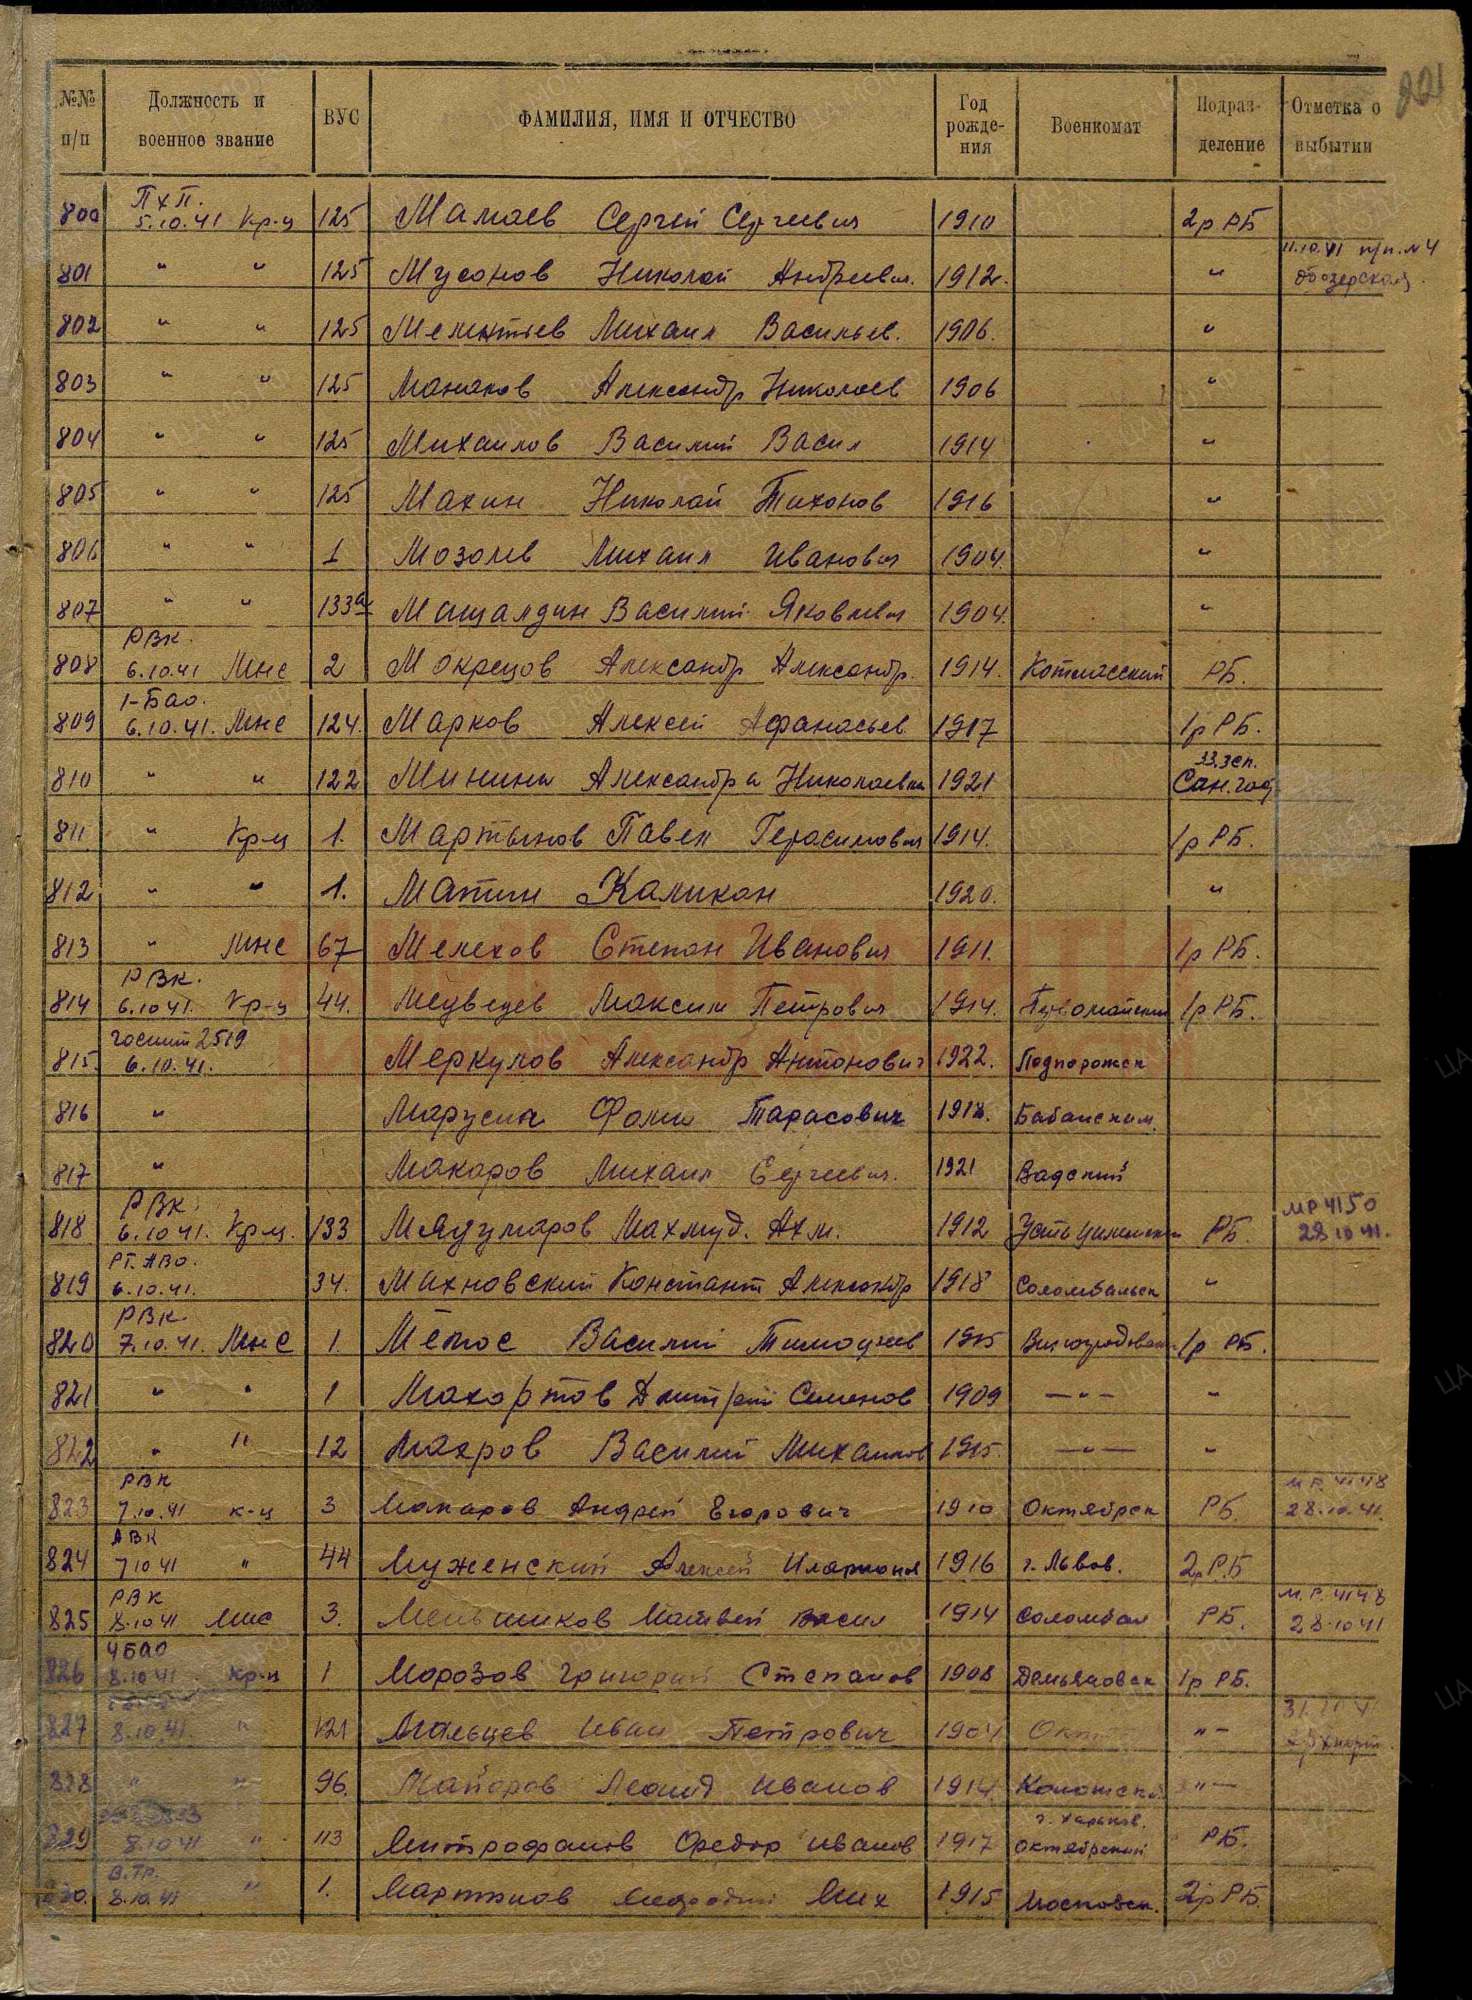 №№ п/п Должность и военное звание ВУС ФАМИЛИЯ, ИМЯ И ОТЧЕСТВО Год рождения Военкомат Подразделение Отметка о выбытии
800 ПхП. 5.10.41 Кр-ц 125 Мамаев Сергей Сергеевич 1910 2р РБ
801 " " 125 Мусонов Николай Андреевич. 1912. " 11.10.41 п/п. №4 Обозерская
802 " " 125 Мелентьев Михаил Васильев. 1906. "
803 " " 125 Манаков Александр Николаев 1906 "
804 " " 125 Михаилов Василий Васил 1914 "
805 " " 125 Махин Николай Тихонов 1916 "
806 " " 1 Мозолев Михаил Иванович 1904. "
807 " " 133а Машалдин Василий Яковлевич 1904. "
808 РВК. 6.10.41 Мнс 2 Мокрецов Александр Александр. 1914. Котласский РБ.
809 1-Бао. 6.10.41. Мнс 124. Марков Алексей Афанасьев 1917 1р РБ.
810 " " 122 Минина Александра Николаевна 1921 33.зсп. Сан.час
811 " Кр-ц 1. Мартынов Павел Герасимович 1914. 1р РБ.
812 " " 1. Матин Каликан 1920. "
813 " Мнс 67 Мелехов Степан Иванович 1911. 1р РБ.
814 РВК. 6.10 41. Кр-ц 44. Медведев Максим Петрович 1914. Первомайский 1р РБ.
815. госпит 2519 6.10.41. Меркулов Александр Антонович 1922. Подпорожск
816 " Марусич Фома Тарасович 1918. Бабаиским.
817 " Макаров Михаил Сергеевич. 1921 Вадский
818 РВК. 6.10 41. Кр-ц. 133 Махмуд. Ахм. 1912 РБ. МР 4150 28 10 41.
819 РГ. АВО. 6.10.41. 34. Махновский Константт Александр 1918 Соломбальск "
820 РВК. 7.10.41. Мнс 1. Василий Тимофеев 1915 1р РБ.
821 " " 1 Махортов Дмитрий Семенов 1909 —"— "
822 " " 12 Махров Василий Михаилов 1915. —"— "
823 РВК 7.10.41 к-ц 3 Макаров Андрей Егорович 1910 Октябрск РБ. М Р. 4148 28.10.41.
824 АВК 7 10 41 " 44 Муженский Алексей Иларионов 1916 г. Львов. 2р РБ
825 РВК 8.10 41 Мнс 3. Меньшиков Матвей Васил 1914 Соломбал РБ. М.Р. 4148 28.10 41
826 4БАО 8.10 41. кр-ц 1 Морозов Григорий Степанов 1908 Демьяновск 1р РБ.
827 8.10.41. " 121 Мальцев Иван Петрович 1904 Окт "—
828 " " 96. Майоров Леонид Иванов 1914. "—
829 8.10 41 " 113 Митрофанов Федор Иванов 1917 г. Харьков. октябрский РБ.
830. В.Тр. 8.10.41 " 1. Мартынов Мих 1915 Московск. 2р РБ.